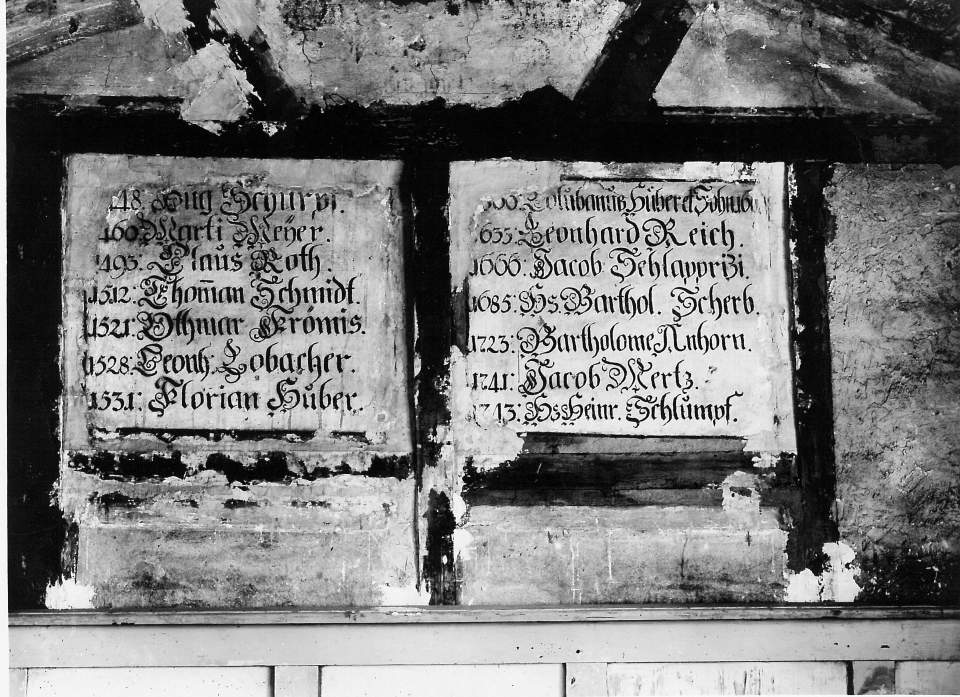 148. Hug Schurpf.
Marti Meÿer.
1493. Claus Roth.
1512: Thom̄an Schmidt.
1521: Othmar Krömis.
1528: Leonh. Lobacher.
1531: Florian Hůber.
Hůber
1635: Leonhard Reich.
1666: Jacob Schlapprizi.
1685: Hs. Barthol. Scherb.
1723: Bartholome Anhorn.
1741: Jacob Mertz.
1743: Hs Heinr. Schlůmpf.